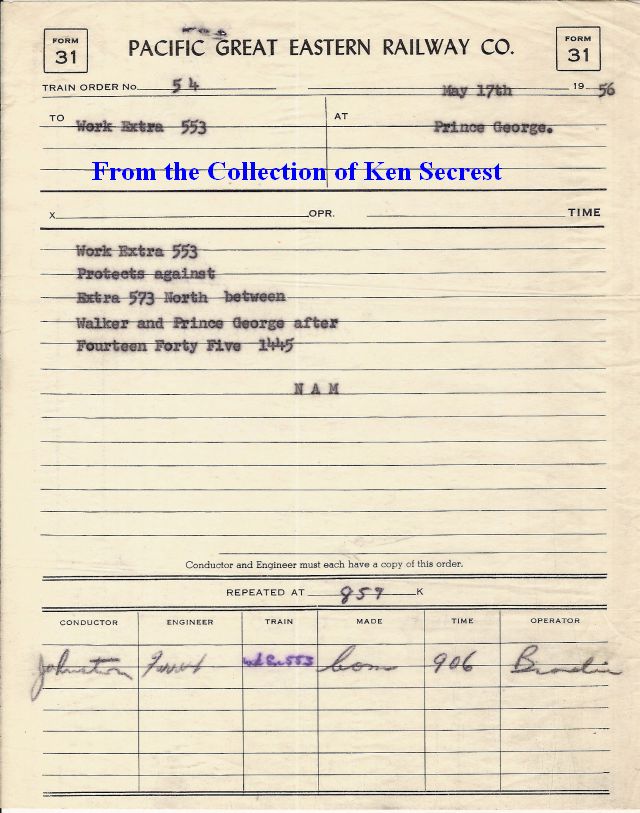 FORM 31
PACIFIC GREAT EASTERN RAILWAY CO.
FORM 31
TRAIN ORDER No. 54 May 17th 1956
TO Work Extra 553 AT Prince George.
From the Collection of Ken Secrest
X OPR. TIME
Work Extra 553
Protects against
Extra 573 North between
Walker and Prince George after
Fourteen Forty Five 1445
N A M
Conductor and Engineer must each have a copy of this order.
REPEATED AT 857 K
CONDUCTOR ENGINEER TRAIN MADE TIME OPERATOR
Johnston 553 Com 906